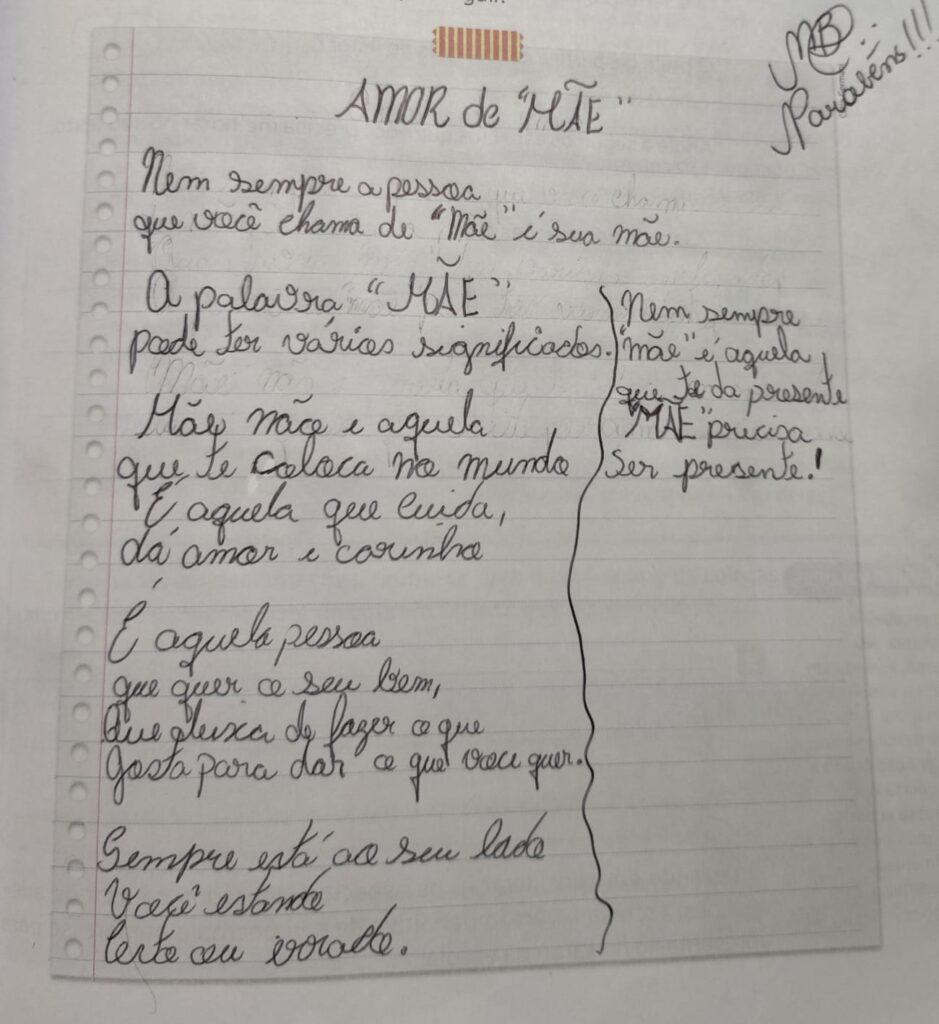 AMOR de "MÃE"
MB
Parabéns!!!
Nem sempre a pessoa
que você chama de "Mãe" é sua mãe.
A palavra "MÃE"
pode ter vários significados.
Mãe não é aquela
que te coloca no mundo
É aquela que cuida,
dá amor e carinho
É aquela pessoa
que quer o seu bem,
Que deixa de fazer o que
gosta para dar o que você quer.
Sempre está ao seu lado
Você estando
certo ou errado.
Nem sempre
"mãe" é aquela
que te da presente
"MÃE" precisa
ser presente!